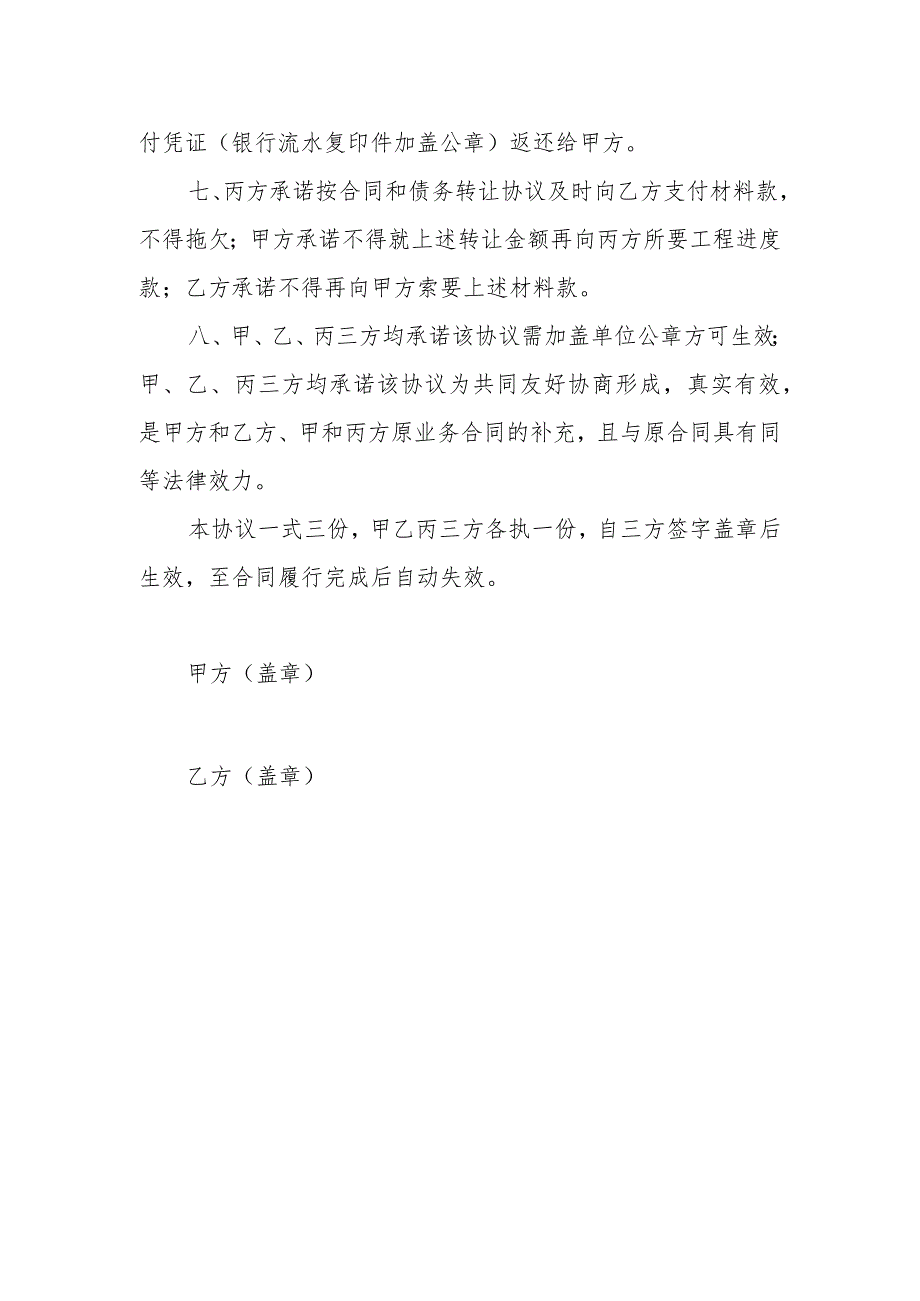 付凭证（银行流水复印件加盖公章）返还给甲方。
七、丙方承诺按合同和债务转让协议及时向乙方支付材料款，
不得拖欠；甲方承诺不得就上述转让金额再向丙方所要工程进度
款；乙方承诺不得再向甲方索要上述材料款。
八、甲、乙、丙三方均承诺该协议需加盖单位公章方可生效；
甲、乙、丙三方均承诺该协议为共同友好协商形成，真实有效，
是甲方和乙方、甲和丙方原业务合同的补充，且与原合同具有同
等法律效力。
本协议一式三份，甲乙丙三方各执一份，自三方签字盖章后
生效，至合同履行完成后自动失效。
甲方（盖章）
乙方（盖章）